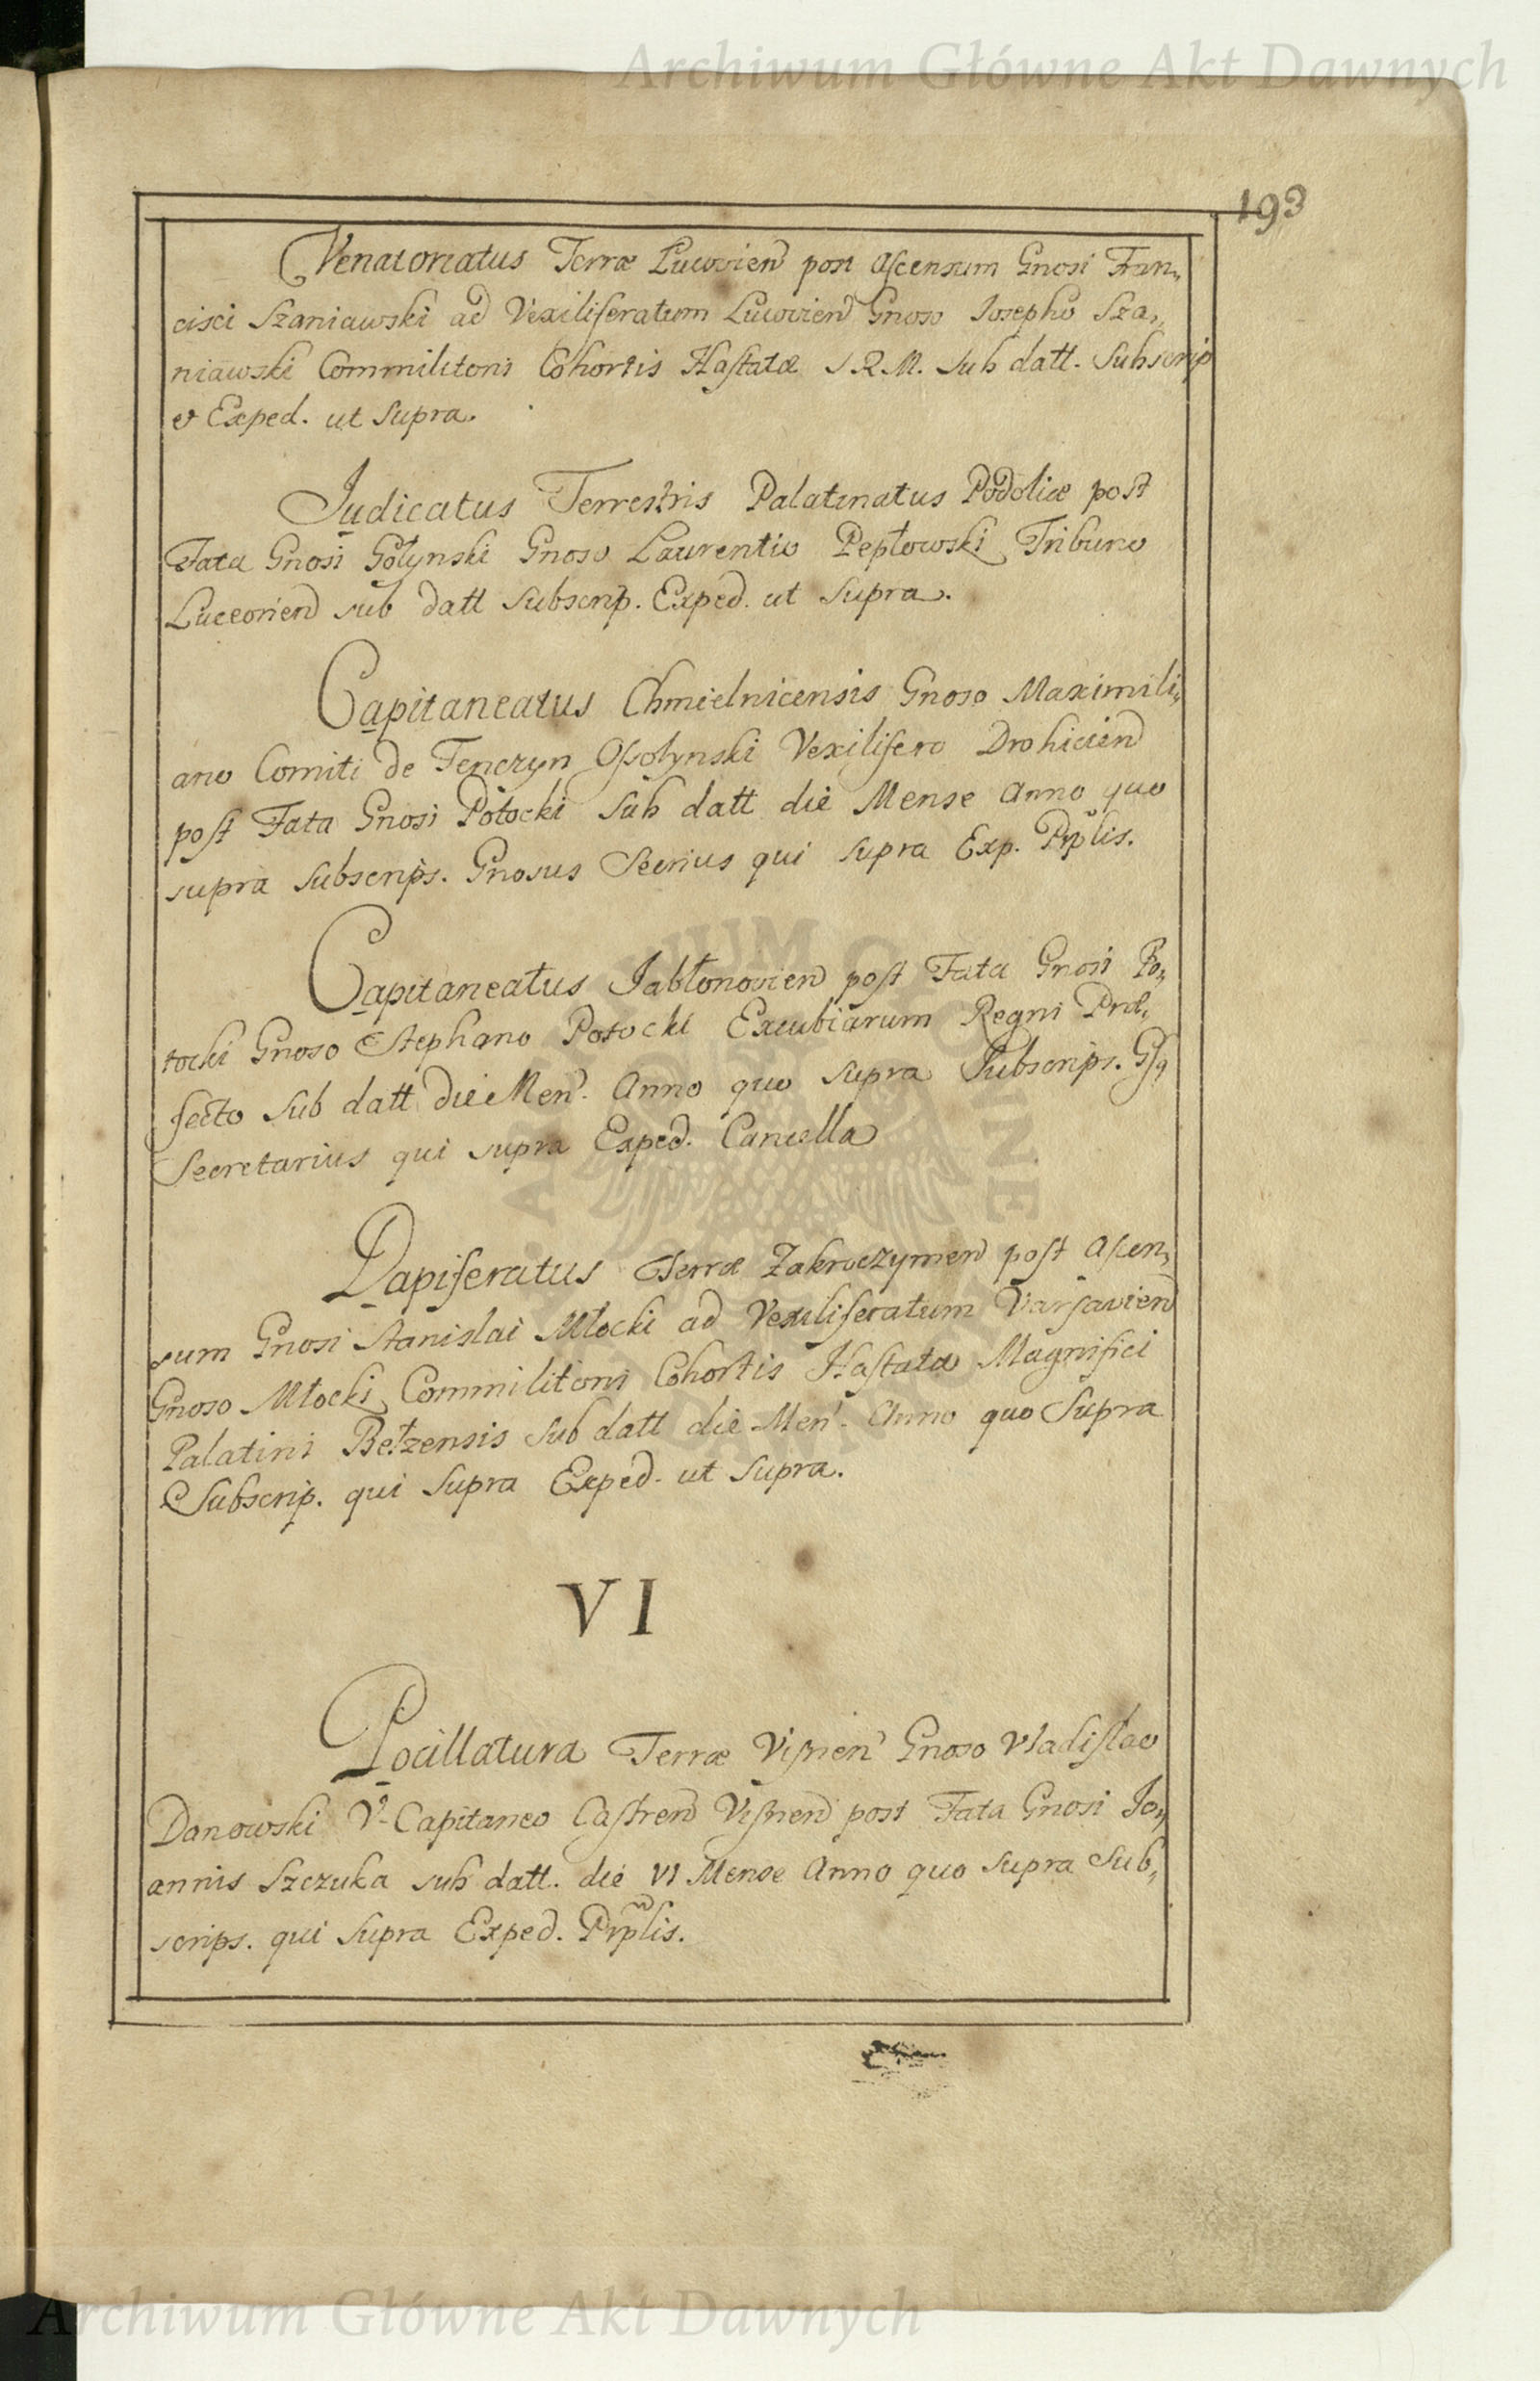 Archiwum Główne Akt Dawnych
193
Venatoriatus Terræ Lucovien post Ascensum Gnosi Fran,,
cisci Szaniawski ad Vexiliferatum Lucovien Gnoso Josepho Sza,,
niawski Commilitoni Cohortis Hastatæ S.R.M. sub datt. Subscrip
et Exped. ut supra.
Judicatus Terrestris Palatinatus Podoliæ post
Fata Gnosi Gołynski Gnoso Laurentio Pepłowski Tribuno
Luceorien sub datt subscrip. Exped. ut supra.
Capitaneatus Chmielnicensis Gnoso Maximili,,
ano Comiti de Tenczyn Ossolynski Vexilifero Drohicien
post Fata Gnosi Potocki sub datt die Mense Anno quo
supra subscrips. Gnosus Secrius qui supra Exp. Prplis.
Capitaneatus Jabłonovien post Fata Gnosi Po,,
tocki Gnoso Stephano Potocki Excubiarum Regni Præ,,
fecto sub datt die Men. Anno quo supra Subscrips. Gsq
Secretarius qui supra Exped. Cancella
Dapiferatus Terræ Zakroczymen post Ascen,,
sum Gnosi Stanislai Młocki ad Vexiliferatum Varsavien
Gnoso Młocki Commilitoni Cohortis Hastatæ Magnifici
Palatini Bełzensis sub datt die Men. Anno quo Supra
Subscrip. qui supra Exped. ut supra.
VI
Pocillatura Terræ Visnen Gnoso Vladislao
Danowski V-Capitaneo Castren Visnen post Fata Gnosi Jo,,
annis Szczuka sub datt. die VI Mense Anno quo supra Sub,,
scrips. qui supra Exped. Prplis.
Archiwum Główne Akt Dawnych